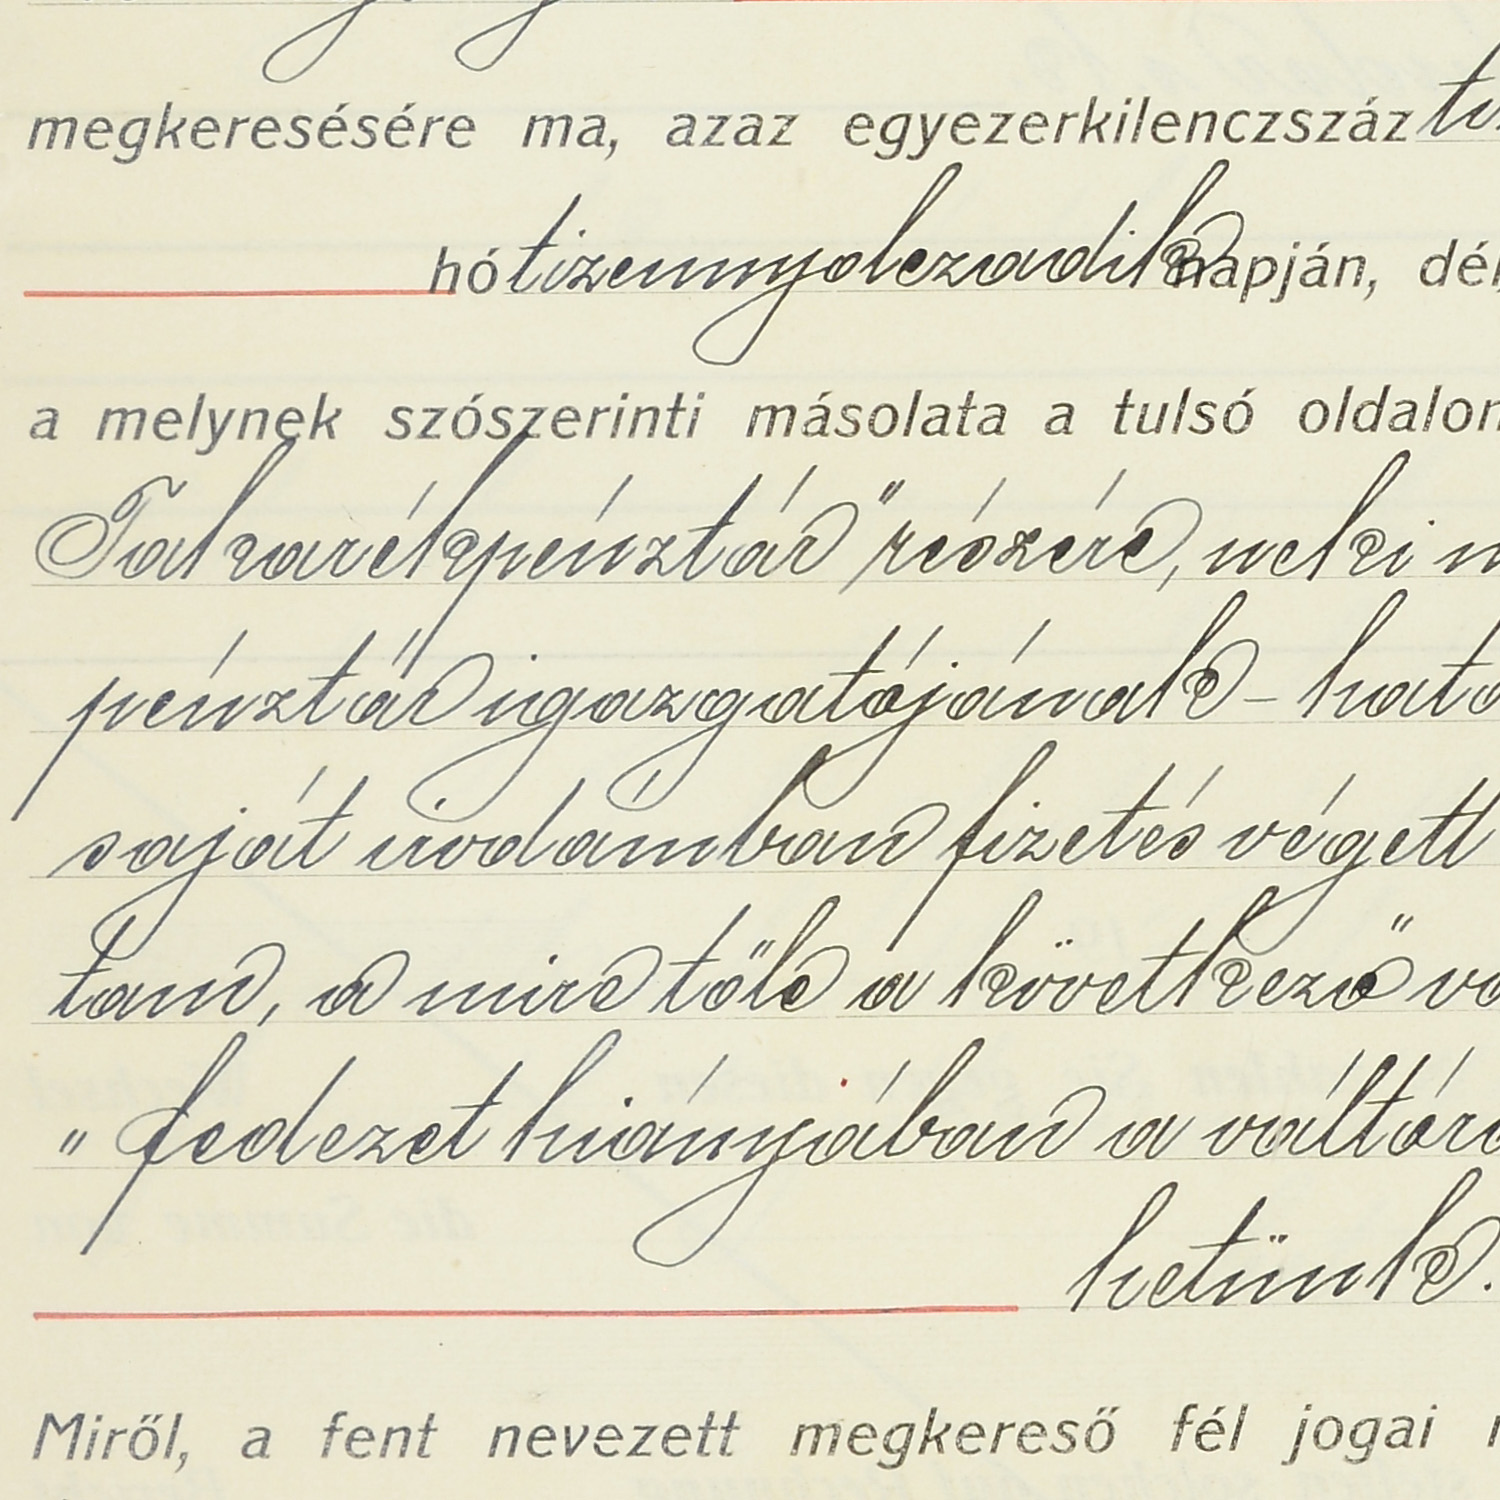 megkeresésére ma, azaz egyezerkilenczszáz
hó tizennyolczadik napján, dél
a melynek szószerinti másolata a tulsó oldalon
Takarékpénztár" részére, neki
pénztár igazgatójának - hato
saját irodámban fizetés végett
tam, a mire tőle a következő va
" fedezet hiányában a váltóra
hetünk.
Miről, a fent nevezett megkereső fél jogai